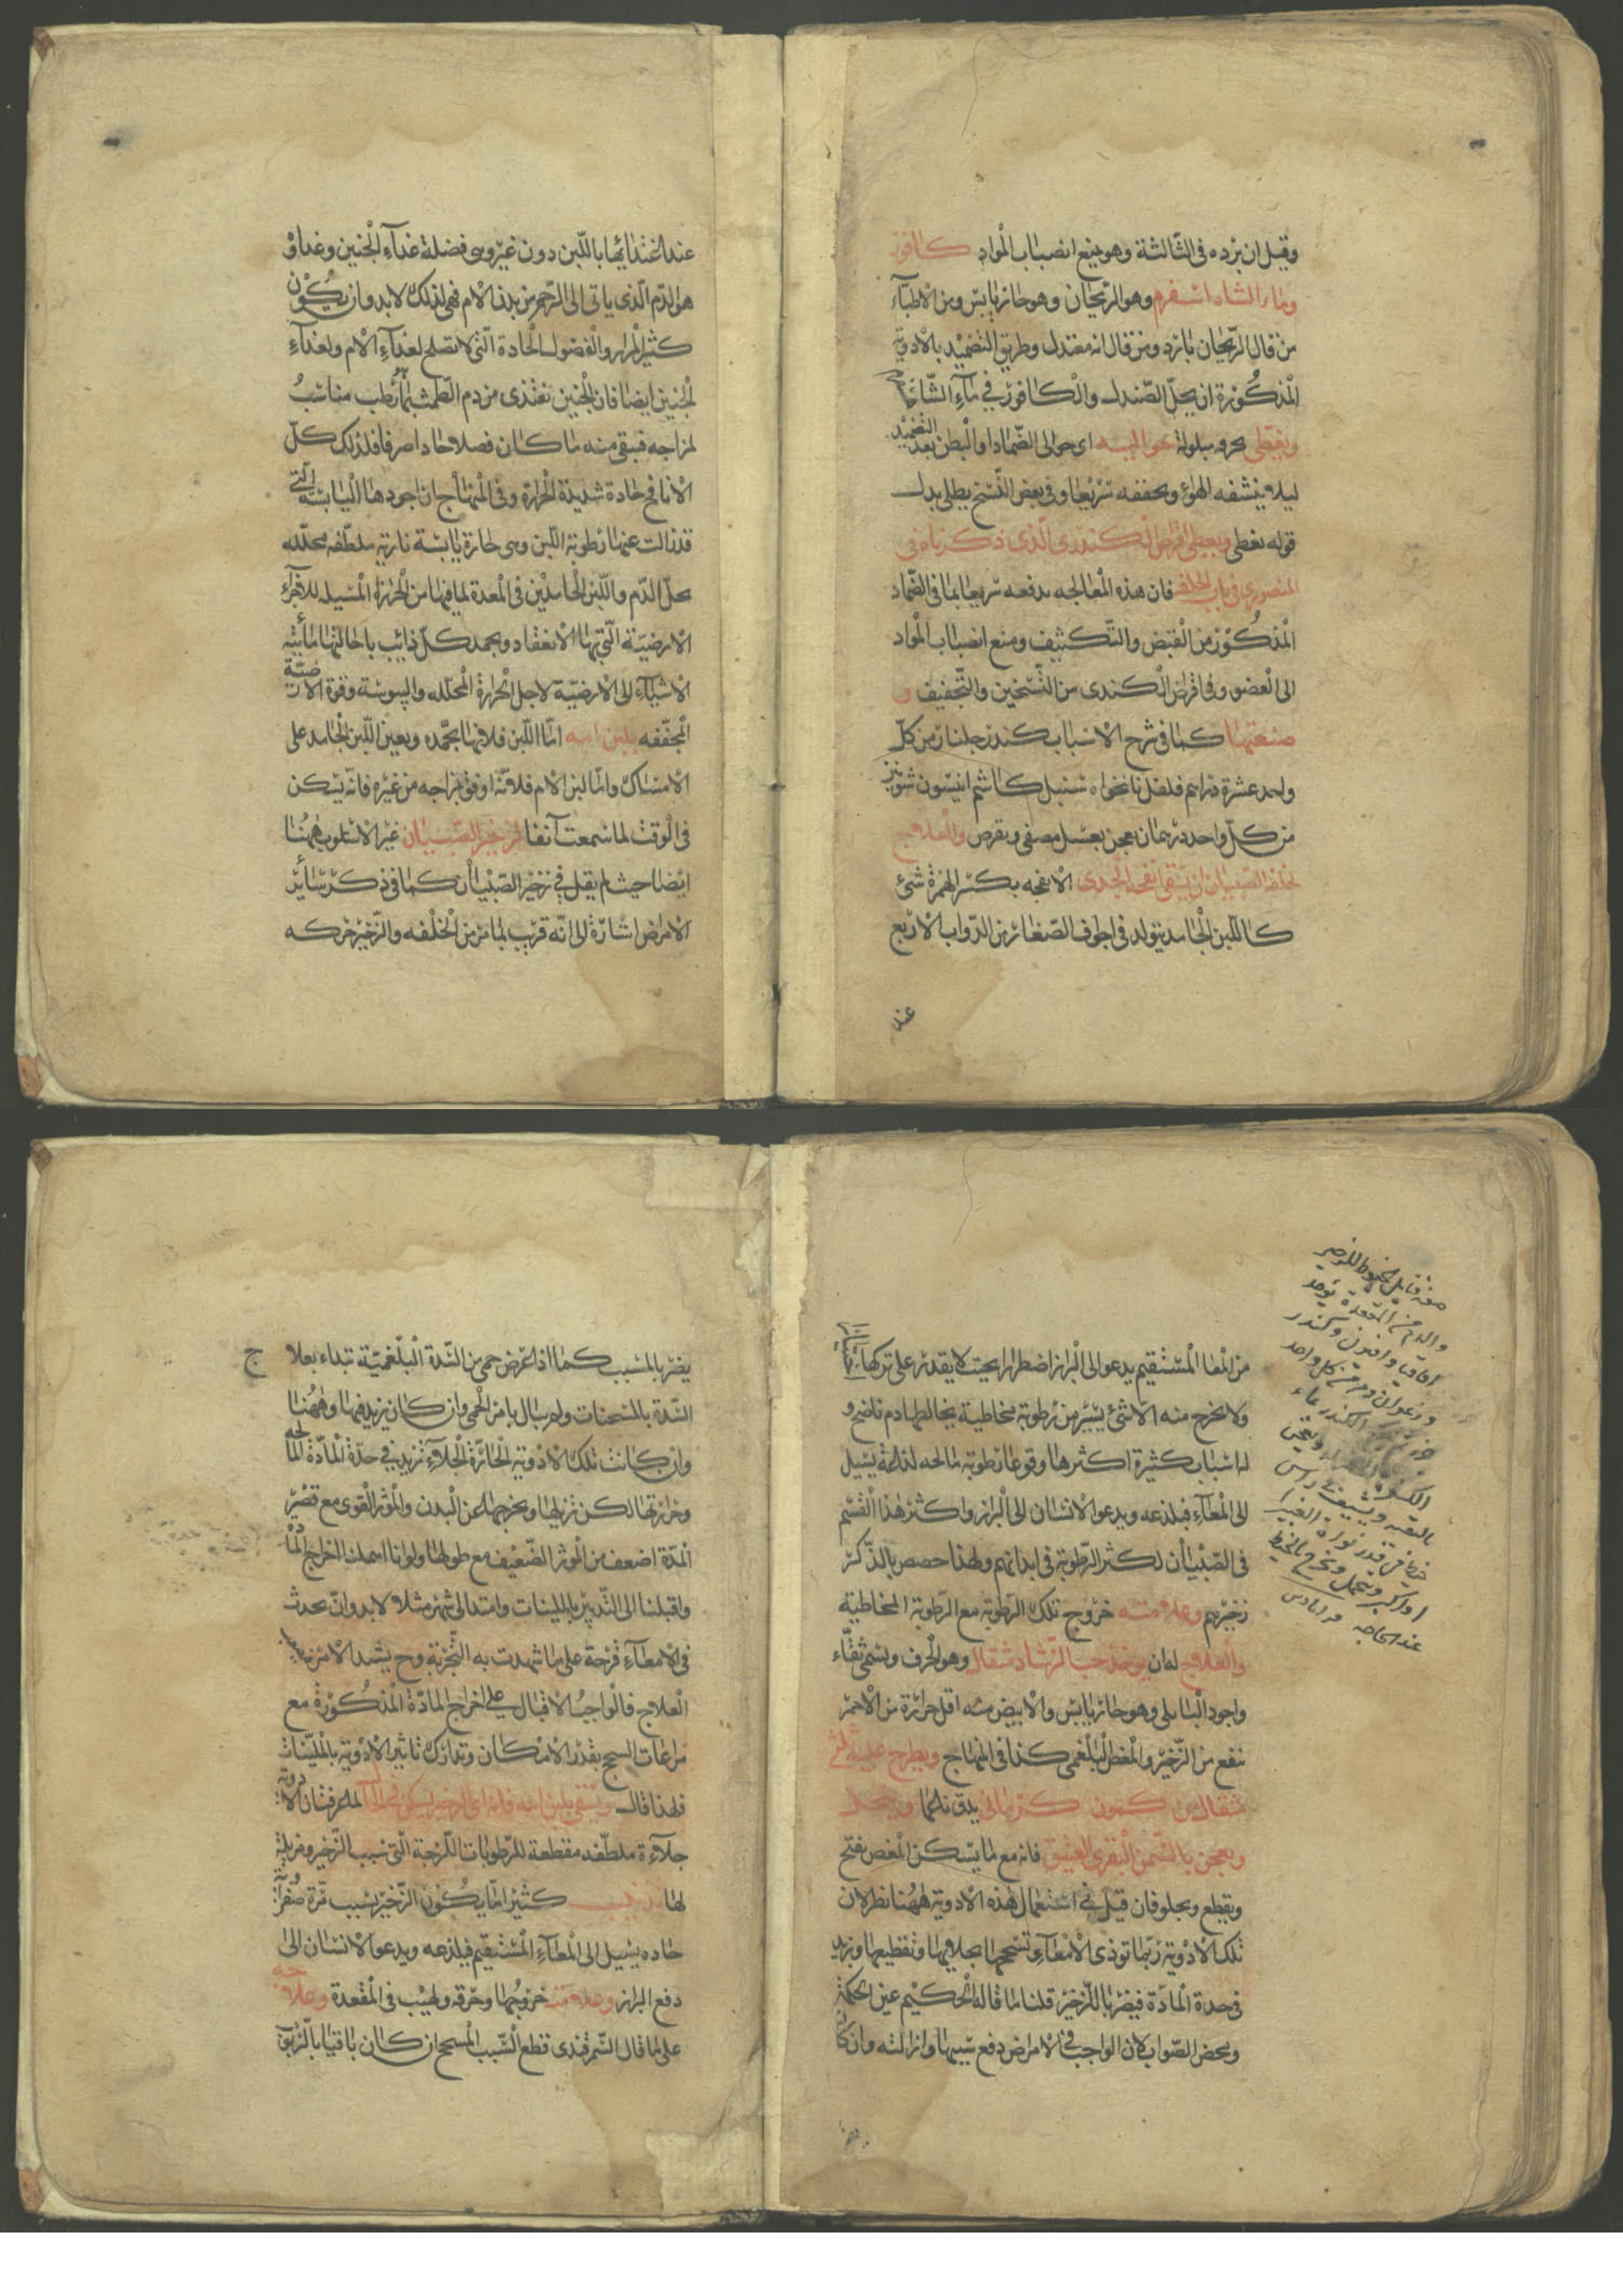 وقيل ان برده فى الثالثة وهو يمنع انصباب المواد كافور
وماء الشاه اسفرم وهو الريحان وهو حار يابس ومن الاطباء
من قال الريحان بارد ومن قال انه معتدل وطريق التضميد بالادوية
المذكورة ان يحل الصندل والكافور في ماء الشا
ويغطى بخرقه مبلولة حواليه اى حوالى الضماد او البطن بعد التضميد
ليلا ينشفه الهواء ويجففه سريعا وفى بعض النسخ يطلى بدل
قوله يغطى ويعطى اقراص الكندرى الذى ذكرناه فى
المنصورى فى باب الخلفه فان هذه المعالجه يدفعه سريعا بما فى الضماد
المذكور من القبض والتكثيف ومنع انصباب المواد
الى العضو وفى اقراص الكندرى من التسخين والتجفيف و
صنعتها كما فى شرح الاسباب كندر جلنار من كل
واحد عشرة دراهم فلفل نانخواه سنبل كاشم انيسون شونيز
من كل واحد درهمان يعجن بعسل مصفى ويقرص والعلاج
لخلفه الصبيان ان يسقى انفحه الجدى الانفحه بكسر الهمزة شئ
كاللبن الجامد يتولد فى اجوف الصغائر من الدواب الاربع
عند
عند اغتذائها باللبن دون غيره وهى فضلة غذاء الجنين وغذاؤ
هو الدم الذى ياتى الى الرحم من بدن الام فهى لذلك لا بد وان يكون
كثير المرار والفضول الحادة التى لا تصلح لغذاء الام ولغذاء
الجنين ايضا فان الجنين يغتذى من دم الطمث بما رطب مناسب
لمزاجه فيبقى منه ما كان فضلا حادا صرفا فلذلك كل
الانافح حادة شديدة الحرارة وفى المنهاج ان اجودها اليابسة التى
قد زالت عنها رطوبة اللبن وهى حارة يابسة نارية ملطفه محلله
يحل الدم واللبن الجامدين فى المعدة لما فيها من الحرارة المسيله للاجزاء
الارضية التى بها الانعقاد ويجمد كل ذائب باحالتها مائيه
الاشياء الى الارضية لاجل الحرارة المحلله واليبوسة وقوة الارضية
المجففه بلبن امه اما اللبن فلانها يجمده ويعين اللبن الجامد على
الامساك واما لبن الام فلانه اوفق بمزاجه من غيره فانه يسكن
فى الوقت لما سمعت آنفا لزحير الصبيان غير الاسلوب ههنا
ايضا حيث لم يقل فى زحير الصبيان كما فى ذكر سائر
الامراض اشارة الى انه قريب لما مر من الخلفه والزحير حركه
من المعا المستقيم يدعو الى البراز اضطرارا بحيث لا يقدر على تركها
ولا يخرج منه الا شئ يسير من رطوبة مخاطية يخالطها دم ناضح و
له اسباب كثيرة اكثرها وقوعا رطوبة مالحه لذاعة يسيل
الى المعاء فيلذعه ويدعو الانسان الى البراز واكثر هذا القسم
فى الصبيان لكثرة الرطوبة فى ابدانهم ولهذا خصص بالذكر
زحيرهم وعلامته خروج تلك الرطوبة مع الرطوبة المخاطية
والعلاج له ان يوخذ حب الرشاد مثقال وهو الحرف ويسمى ثفاء
واجود البابلى وهو حار يابس والابيض منه اقل حرارة من الاحمر
ينفع من الزحير والمغص البلغمى كذا فى المنهاج ويطرح عليه ثلث
مثقال من كمون كرمانى يدق ناعما وينخل
ويعجن بالسمن البقرى العتيق فانه مع ما يسكن المغص يفتح
ويقطع ويجلو فان قيل فى استعمال هذه الادوية ههنا نظر لان
تلك الادوية ربما توذى الامعاء وتسحجها بجلائها وتقطيعها ويزيد
فى حدة المادة فيضر بالزحير قلنا ما قاله الحكيم عين الحكمة
ومحض الصواب لان الواجب فى الامراض دفع سببها وازالته وان كان
يضر بالمسبب كما اذا عرض حمى من السدة البلغمية تبداء بعلاج
السدة بالمسخنات ولم يبال بامر الحمى وان كان يزيد فيها وههنا
وان كانت تلك الادوية الحارة الجلاءة تزيد فى حدة المادة المالحه
وحرارتها لكن تزيلها ويخرجها عن البدن والموثر القوى مع قصر
المدة اضعف من الموثر الضعيف مع طولها ولو انا اهملنا اخراج المادة
واقبلنا الى التدبير بالملينات وامتد الى شهر مثلا لا بد وان يحدث
فى الامعاء قرحة على ما شهدت به التجربة وح يشتد الامر
العلاج فالواجب الاقبال على اخراج المادة المذكورة مع
مراعات السحج بقدر الامكان وتدارك تاثير الادوية بالملينات
فلهذا قال ويسقى بلبن امه فانه اى الزحير يسكن فى الحال لما عرفت ان الادوية
جلاءة ملطفه مقطعة للرطوبات اللزجة التى تسبب الزحير ومزيلة
لها تذنيب كثيرا ما يكون الزحير بسبب مرة صفراء
حاده يسيل الى المعاء المستقيم فيلذعه ويدعو الانسان الى
دفع البراز وعلامته خروجها وحرقة ولهيب فى المقعدة وعلاجه
على ما قال السمرقندى قطع السبب المسحج ان كان باقيا بالربوب